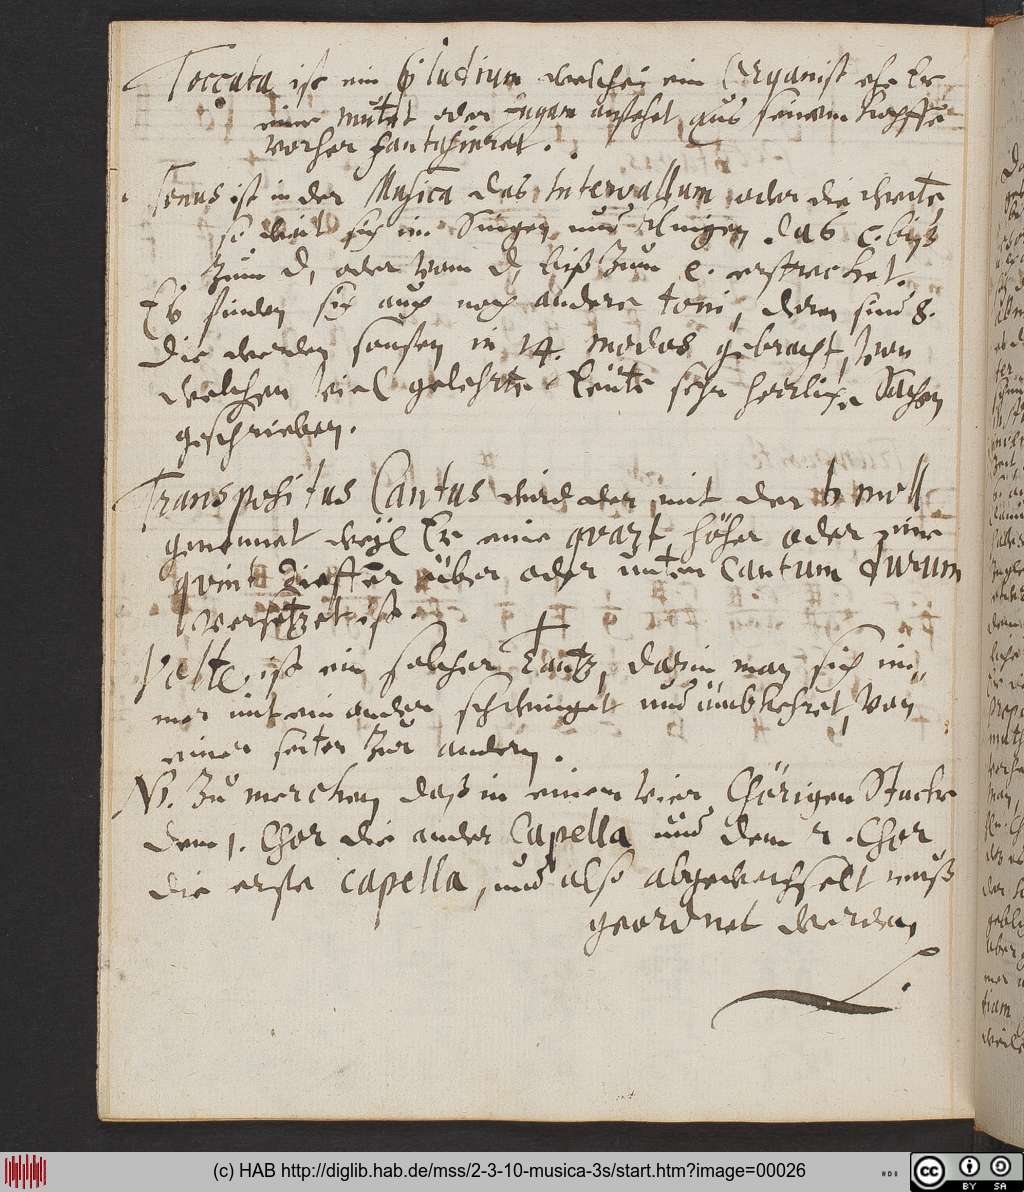 Toccata ist ein præludium welches ein Organist ehe Er
eine mutet oder fugam anfehet, aus seinem Kopffe
vorher fantasieret.
Tonus ist in der Musica das Intervallum oder die weite
so weit sich im Singen und Klingen das c. biß
zum d, oder vom d biß zum e. erstrecket.
Es finden sich auch noch andere toni, deren sind 8.
die werden sonsten in 14. modos gebracht, von
welchen viel gelehrte Leute sehr herrliche Sachen
geschrieben.
Transpositus Cantus wird der mit der b moll
genennet weyl Er eine quart höher oder eine
quint tieffer über oder unter Cantum durum
versetzet ist.
Volte, ist ein solcher Tantz, darin man sich im„
mer mit ein ander schwinget und umbkehret, von
einer seiten zur andern.
NB. Zu mercken daß in einem vier Chörigen Stucke
dem 1. Chor die ander Capella und dem 2. Chor
die erste capella, und also abgewechselt muß
geordnet werden
(c) HAB http://diglib.hab.de/mss/2-3-10-musica-3s/start.htm?image=00026
cc BY SA